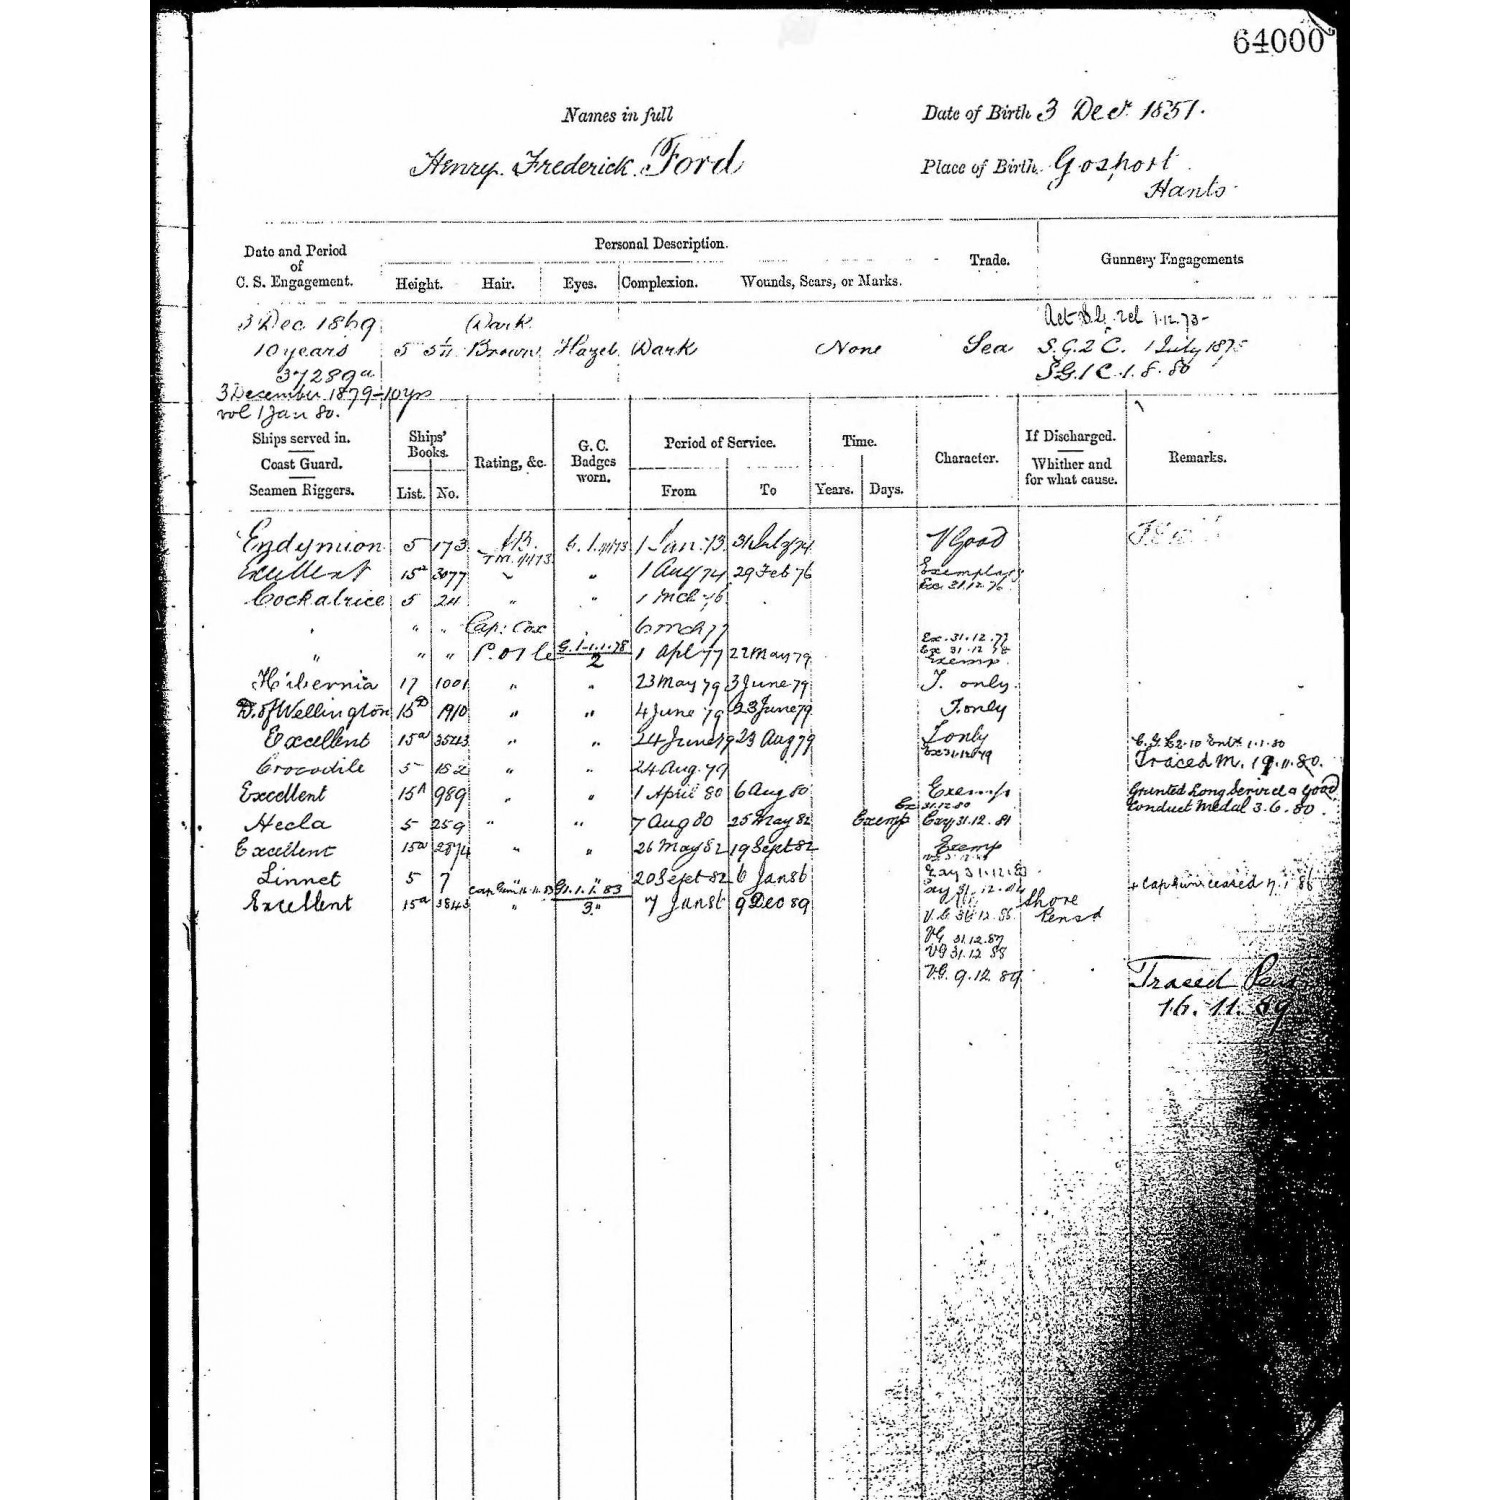 64000
Names in full
Date of Birth 3 Decr. 1851.
Henry Frederick Ford
Place of Birth Gosport
Hants
Date and Period of C. S. Engagement.
Personal Description.
Trade.
Gunnery Engagements
Height. Hair. Eyes. Complexion. Wounds, Scars, or Marks.
3 Dec 1869 Dark
10 years 5 Brown Hazel Dark None Sea S.G.2 C. 1 July 1875
37289a S.G.1 C. 1. 8. 80
3 December 1879 - 10 yrs
vol 1 Jan 80.
Ships served in.
Coast Guard.
Seamen Riggers.
Ships' Books.
List. No.
Rating, &c.
G. C. Badges worn.
Period of Service.
From To
Time.
Years. Days.
Character.
If Discharged.
Whither and for what cause.
Remarks.
Endymion 5 173 AB. 1 Jan. 73 31 July 74 V Good
Excellent 15a 3077 " 1 Aug 74 29 Feb 76 Exemplary
Ex 31.12.76
Cockatrice 5 24 " " 1 Mch 76
" " " Cap: Cox 6 Mch 77 Ex. 31.12.77
" " " P.O 1 Cl G.1-1.1.78 1 Apl 77 22 May 79 Ex 31 12 78
2 Exemp.
Hibernia 17 1001 " " 23 May 79 3 June 79 T. only.
D. of Wellington 15D 1910 " " 4 June 79 23 June 79 T. only
Excellent 15a 3543 " " 24 June 79 23 Aug 79 T only
Ex 31.12.79
Crocodile 5 152 " " 24 Aug. 79 Traced M. 19.11.80.
Excellent 15A 989 " " 1 April 80 6 Aug 80 Exemp Granted Long Service & Good
Ex 31.12.80 Conduct Medal 3.6.80.
Hecla 5 259 " " 7 Aug 80 25 May 82 Exemp Exy 31.12.81
Excellent 15a 2874 " " 26 May 82 19 Sept 82 Exemp
Linnet 5 7 " 20 Sept 82 6 Jan 86 Exy 31.12.83
G1.1.1.83 + Cap Gun ceased 7.1.86
Excellent 15a 3843 " 3 " 7 Jan 86 9 Dec 89 Shore
V.G 31.12.86 Pensd
VG 31.12.87
VG 31.12 88
V.G. 9.12.89
Traced Pens
16.11.89